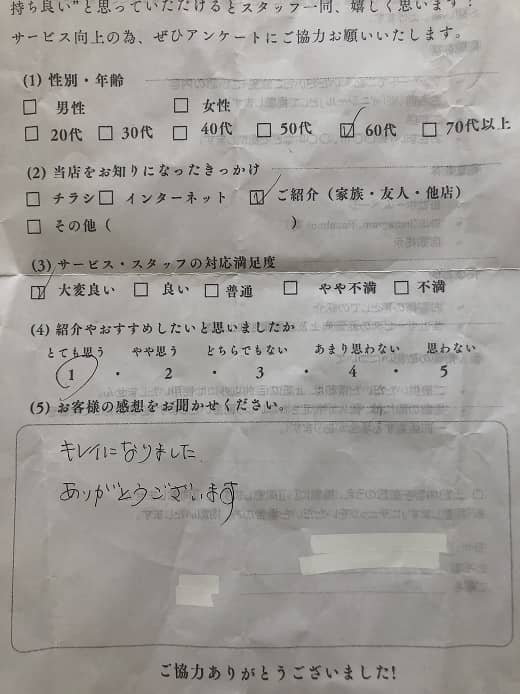 持ち良い"と思っていただけるとスタッフ一同、嬉しく思います!
サービス向上の為、ぜひアンケートにご協力お願いいたします。
(1) 性別・年齢
□ 男性 □ 女性
□ 20代 □ 30代 □ 40代 □ 50代 ☑ 60代 □ 70代以上
(2) 当店をお知りになったきっかけ
□ チラシ □ インターネット ☑ ご紹介（家族・友人・他店）
□ その他（ ）
(3) サービス・スタッフの対応満足度
☑ 大変良い □ 良い □ 普通 □ やや不満 □ 不満
(4) 紹介やおすすめしたいと思いましたか
とても思う やや思う どちらでもない あまり思わない 思わない
1 ・ 2 ・ 3 ・ 4 ・ 5
(5) お客様の感想をお聞かせください。
キレイになりました
ありがとうございます
ご協力ありがとうございました!